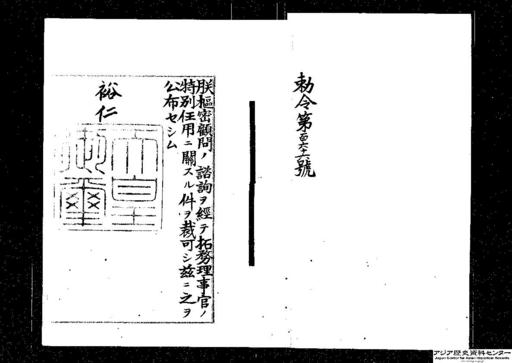 勅令第百六十六號
朕樞密顧問ノ諮詢ヲ經テ拓務理事官ノ
特別任用ニ關スル件ヲ裁可シ茲ニ之ヲ
公布セシム
裕仁
天皇御璽
アジア歴史資料センター
Japan Center for Asian Historical Records